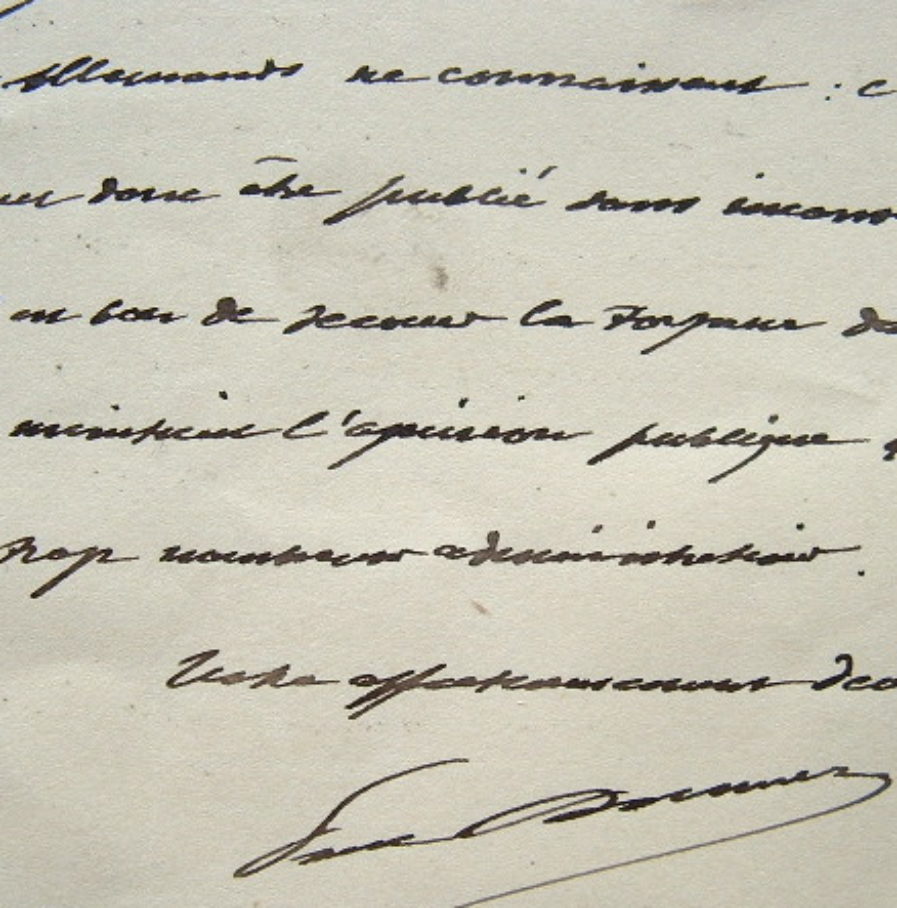 Allemands ne connaissent : c
donc être publié sans incon
bon de secouer la torpeur de
l'opinion publique
trop nombreux administrateurs.
Votre affectueusement dévo
Paul Doumer